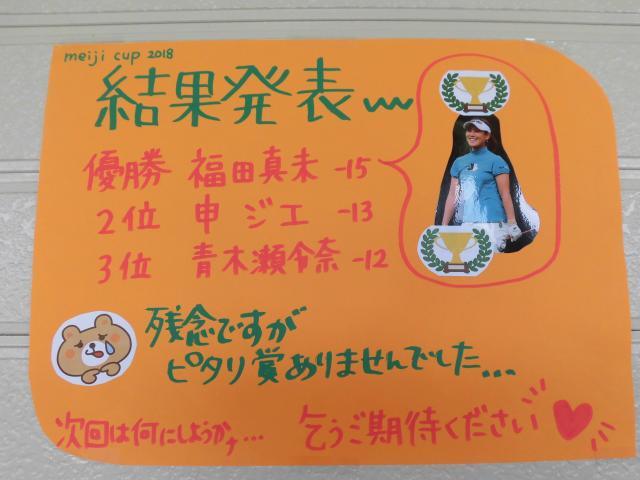 meiji cup 2018
結果発表〰
優勝 福田真未 -15
2位 申ジエ -13
3位 青木瀬令奈 -12
残念ですが
ピタリ賞ありませんでした...
次回は何にしようかナ...
乞うご期待ください♥